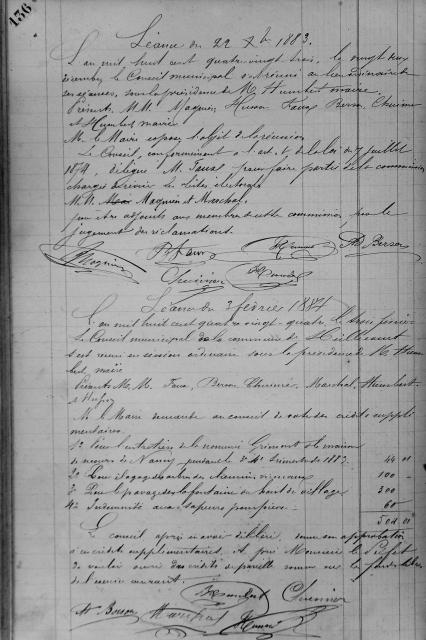 136
Séance du 22 Xbre 1883.
L'an mil huit cent quatre vingt trois, le vingt deux
décembre le Conseil municipal s'est réuni au lieu ordinaire de
ses séances, sous la présidence de M. Humbert maire.
Présents M.M. Maquin, Husson Faux Berson, Chuinier
et Humbert maire.
M. le Maire expose l'objet de la réunion
Le Conseil, conformément à l'art. de la loi du 7 juillet
1874, délègue M. Faux pour faire partie de la commission
chargée de réviser les listes électorales
M.M. Maquin et Marchal
pour être adjoints aux membres de cette commission pour le
jugement des réclamations.
Maquin Faux Husson Berson
Chuinier Humbert
Séance du 3 février 1884
L'an mil huit cent quatre vingt-quatre le trois février
le Conseil municipal de la commune de
s'est réuni en session ordinaire sous la présidence de M. Hum
bert, maire
Présents M.M. Faux, Berson Chuinier, Marchal, Humbert
et Husson
M. le Maire demande au conseil de voter des crédits supplé
mentaires.
1° Pour l'entretien de la nommée Grimont à la maison
de secours de Nancy, pendant le 3e 4e trimestre de 1883. 44 01
2° Pour élagage des arbres des chemins vicinaux 100 -
3° Pour le pavage de la fontaine du haut du village 300 -
4° Indemnité aux sapeurs pompiers 60
504 01
Le conseil après en avoir délibéré, donne son approbation
à ces crédits supplémentaires, et prie Monsieur le Préfet
de vouloir ouvrir des crédits de pareille somme sur les fonds libres
de l'exercice courant.
Humbert Chuinier
Berson Marchal Husson